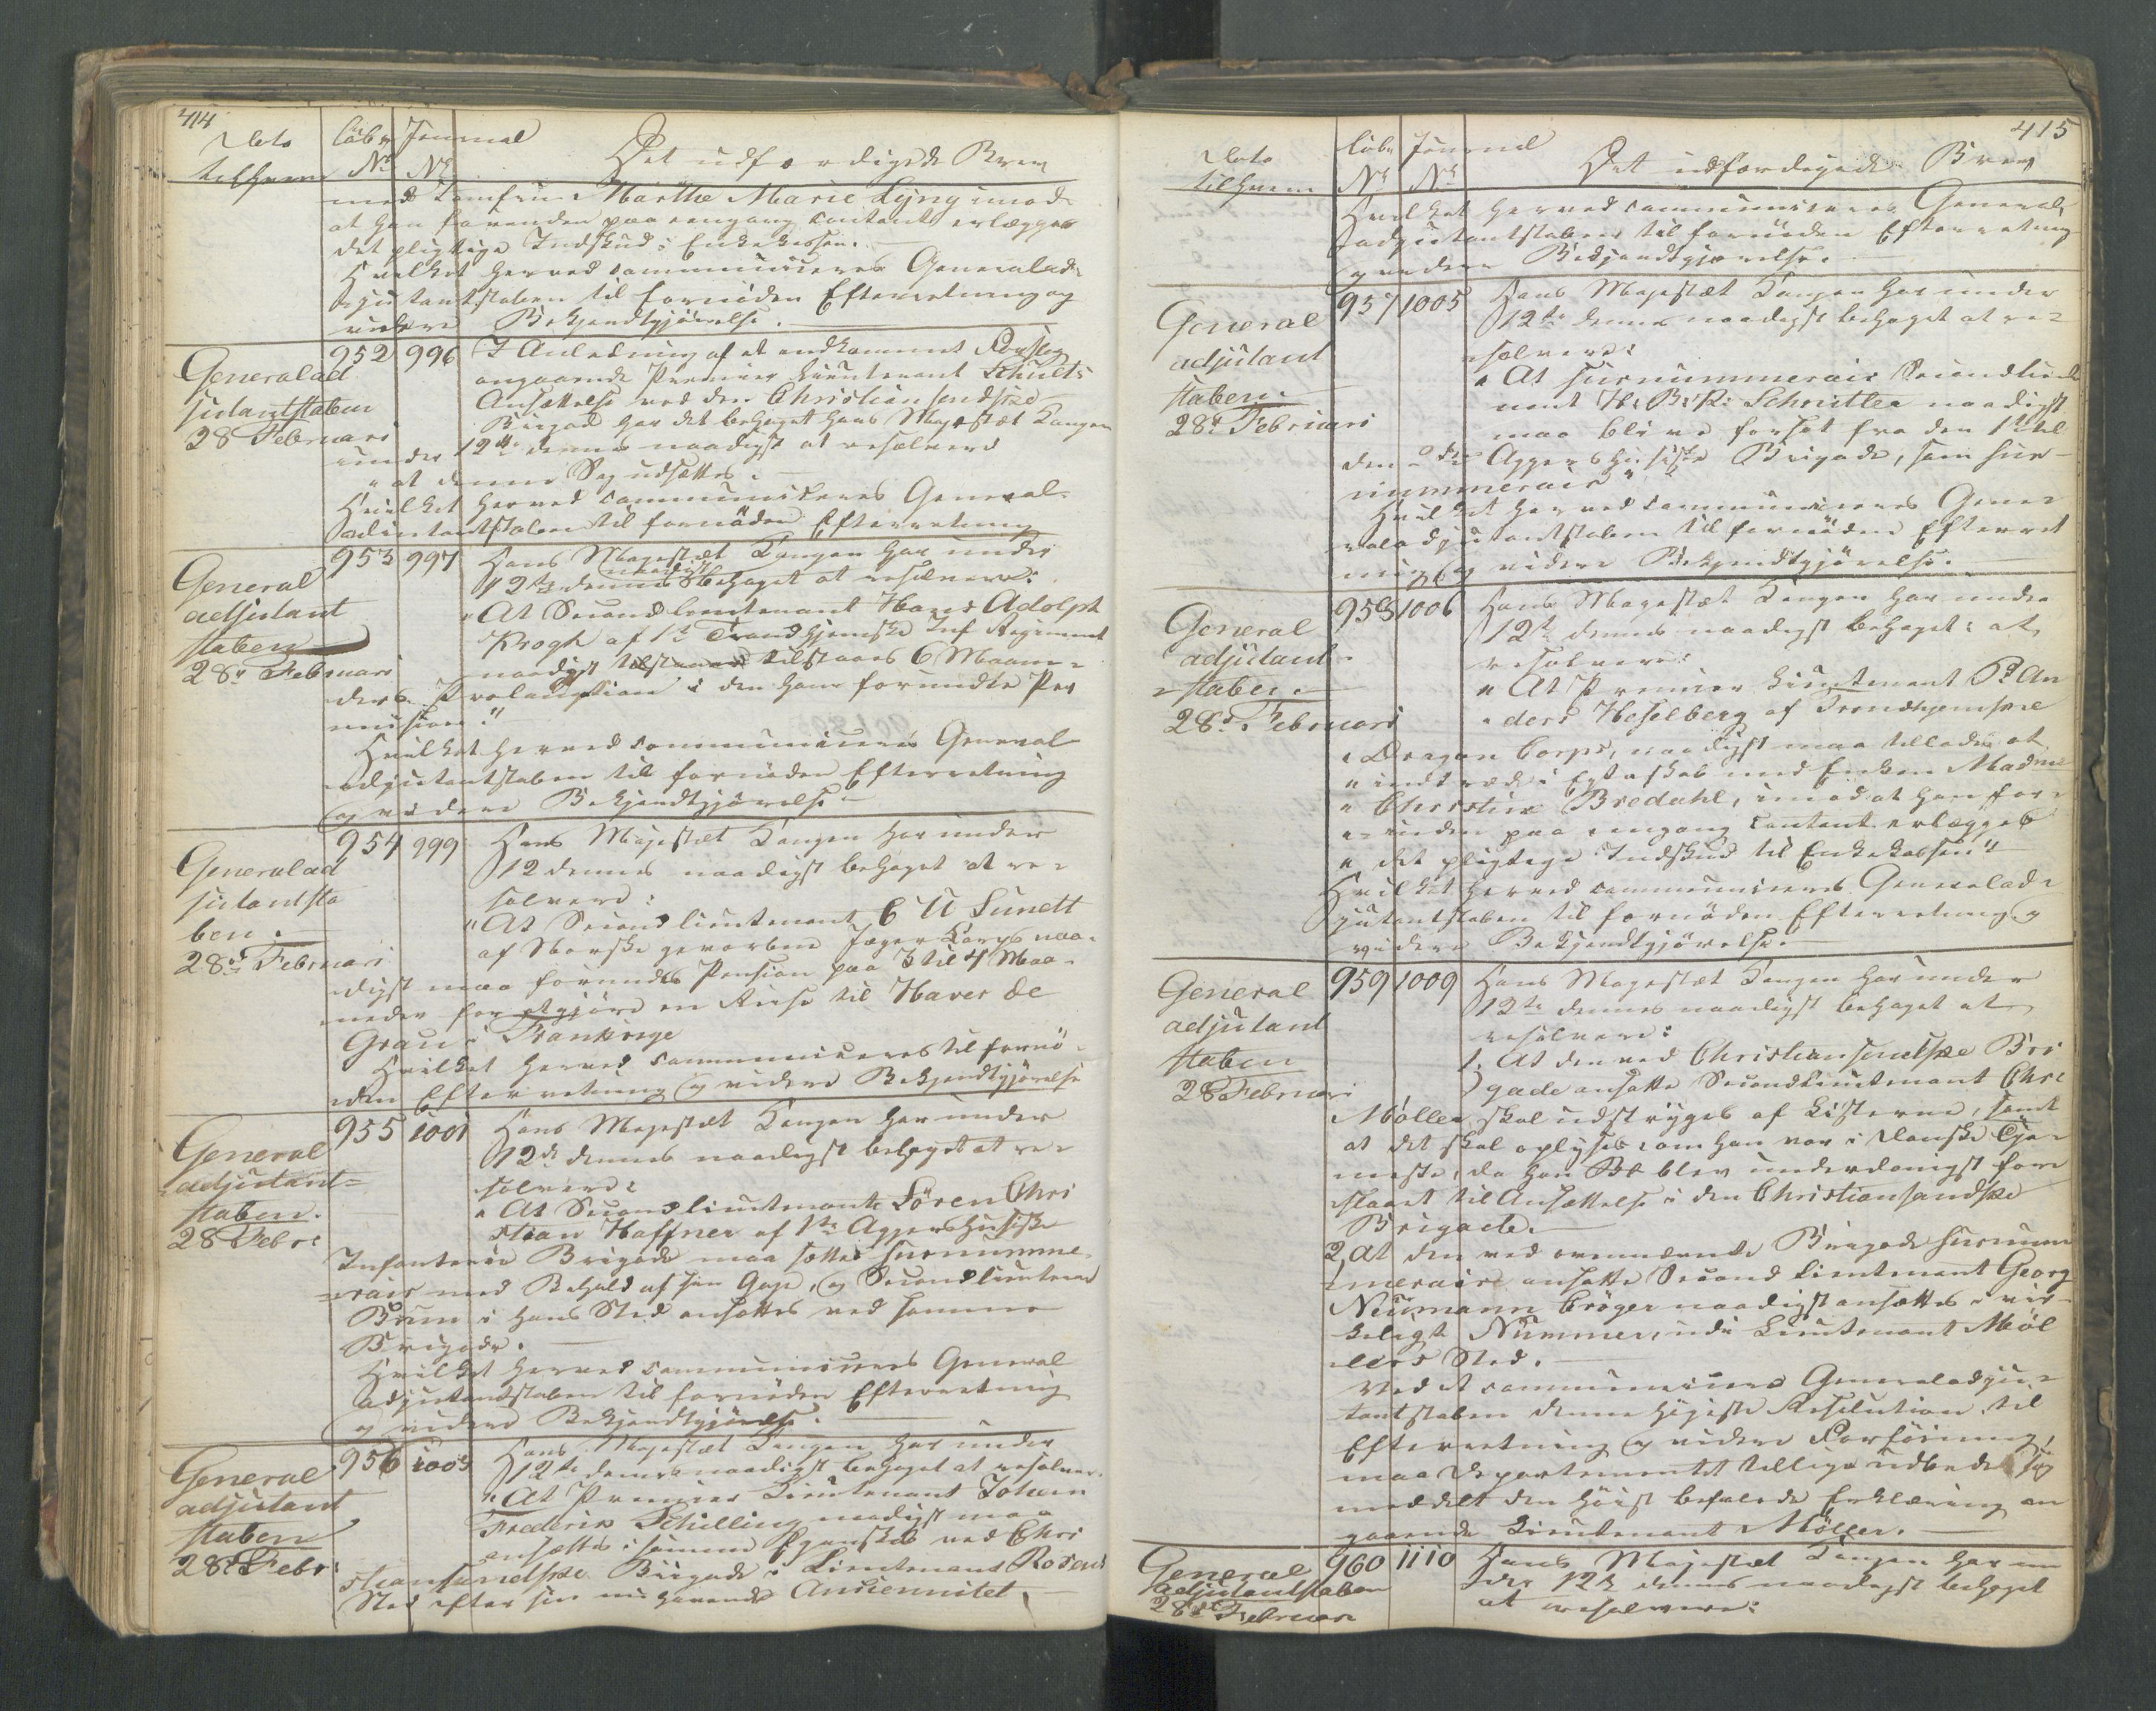 414
Dato
tilhvem
Løbe
No
Journal
No
Det udfærdigede Brev
med Jomfru Marthe Marie Lÿng imod
at han forinden paa eengang contant erlægger
det pligtige Indskud i Enkekassen.
Hvilket herved communiceres Generalad-
jutantstaben til fornöden Efterretning og
videre Bekjendtgjörelse.
Generalad
jutantstaben
28 Februari
952 996
I Anledning af et indkommet Forslag
angaaende Premier Lieutenant Schultz
Ansættelse ved den Christiansandske
Brigade har det behaget Hans Majestæt Kongen
under 12te dennes naadigst at resolvere
"at denne Sag udsættes.
Hvilket herved communiceres General-
adjutantstaben til fornöden Efterretning
General
adjutant
staben
28d Februari
953 997
Hans Majestæt Kongen har under
12te dennes naadigst behaget at resolvere:
"At Secondlieutenant Hans Adolph
Krogh af 1ste Trondhjemske Inf Regiment
naadigst tilstaaes 6 Maane-
ders Prolongation i den ham forundte Per
mission."
Hvilket herved communiceres General
adjutantstaben til fornöden Efterretning
og videre Bekjendtgjörelse
Generalad
jutantsta
ben.
28d Februari
954 999
Hans Majestæt Kongen har under
12 dennes naadigst behaget at re-
solvere:
"At Secondlieutenant C U Sundt
af Norske gevorbne Jæger Corps naa-
digst maa forundes Pension paa 3 til 4 Maa-
neder for at gjöre en Reise til Haver de
Grau i Frankrige
Hvilket herved communiceres til fornö-
den Efterretning og videre Bekjendtgjörelse
General
adjutant=
staben.
28 Febr:
955 1001
Hans Majestæt Kongen har under
12d dennes naadigst behaget at re-
solvere:
"At Secondlieutenant Sören Chri
stian Haffner af 1ste Aggershusiske
Infanterie Brigade maa sættes surnumme-
rair med Behold af sin Gage, og Secondlieutenant
Brun i hans Sted ansættes ved samme
Brigade.
Hvilket herved communiceres General
adjutantstaben til fornöden Efterretning
og videre Bekjendtgjörelse.
General
adjutant
staben
28d Febr:
956 1003
Hans Majestæt Kongen har under
12te dennes naadigst behaget at resolvere
"At Premier Lieutenant Johan
Frederik Schilling naadigst maa
ansættes i samme Egenskab ved Chri
stiansandske Brigade i Lieutenant Rosens
Sted efter sin nu havende Anciennitet
415
Dato
tilhvem
Løbe
No
Journal
No
Det udfærdigede Brev
Hvilket herved communiceres General
adjutantstaben til fornöden Efterretning
og videre Bekjendtgjörelse.
General
adjutant
staben
28d Februari
957 1005
Hans Majestæt Kongen har under
12te dennes naadigst behaget at re-
solvere:
"At surnummerair Secondlieute
nant H: B: K: Schnitler naadigst
maa blive forsat fra den 1ste til
den 2den Aggershusiske Brigade, som sur-
nummerair"
Hvilket herved communiceres Gene-
raladjutantstaben til fornöden Efterret
ning og videre Bekjendtgjörelse.
General
adjutant-
staben
28d Februari
958 1006
Hans Majestæt Kongen har under
12te dennes naadigst behaget at
resolvere:
"At Premier Lieutenant P: An
ders Heselberg af Trondhjemske
Dragon Corps, naadigst maa tillades at
indtræde i Egteskab med Enken Madme
Christine Bredahl, imod at han for-
inden paa eengang contant erlægger
det pligtige Indskud til Enkekassen"
Hvilket herved communiceres Generalad-
jutantstaben til fornöden Efterretning og
videre Bekjendtgjörelse.
General
adjutant
staben
28 Februari
959 1009
Hans Majestæt Kongen har under
12te dennes naadigst behaget at
resolvere:
1. At den ved Christiansandske Bri
gade ansatte Secondlieutenant Chr:
Möller skal udstryges af Listerne, samt
at det skal oplyses om han var i Danske Tje-
neste, da han blev underdanigst fore
slaaet til Ansættelse i den Christiansandske
Brigade.
2, At den ved ovennævnte Brigade surnum
merair ansatte Second Lieutenant Georg
Neumann Cröger naadigst ansættes i vir-
keligt Nummer, udi Lieutenant Möl
lers Sted.
Ved at communicere Generaladju-
tantstaben denne höjeste Resolution til
Efterretning og videre Forföining,
maa Departementet tillige udbede sig
meddelt den höist befalede Erklæring an
gaaende Lieutenant Möller.
General
adjutantstaben
28d Februari
960 1110
Hans Majestæt Kongen har un
der 12te dennes naadigst behaget
at resolvere: